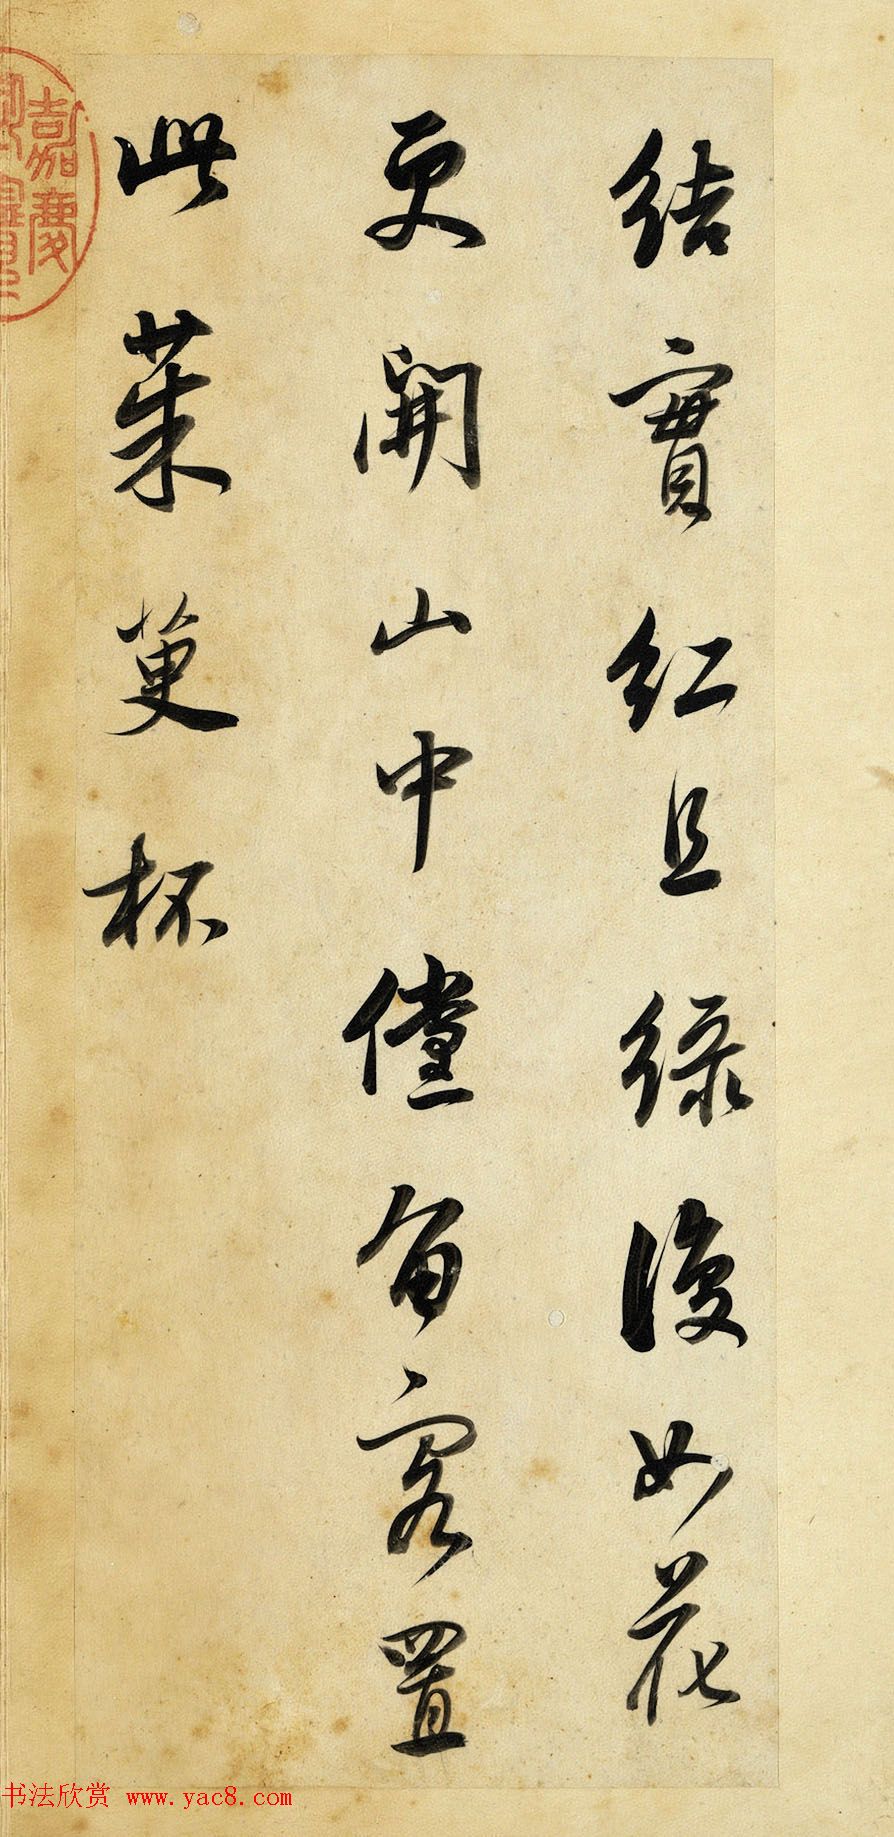 結實紅且綠復如花
更開山中儻留客置
此茱萸杯
嘉慶
書法欣赏 www.yac8.com